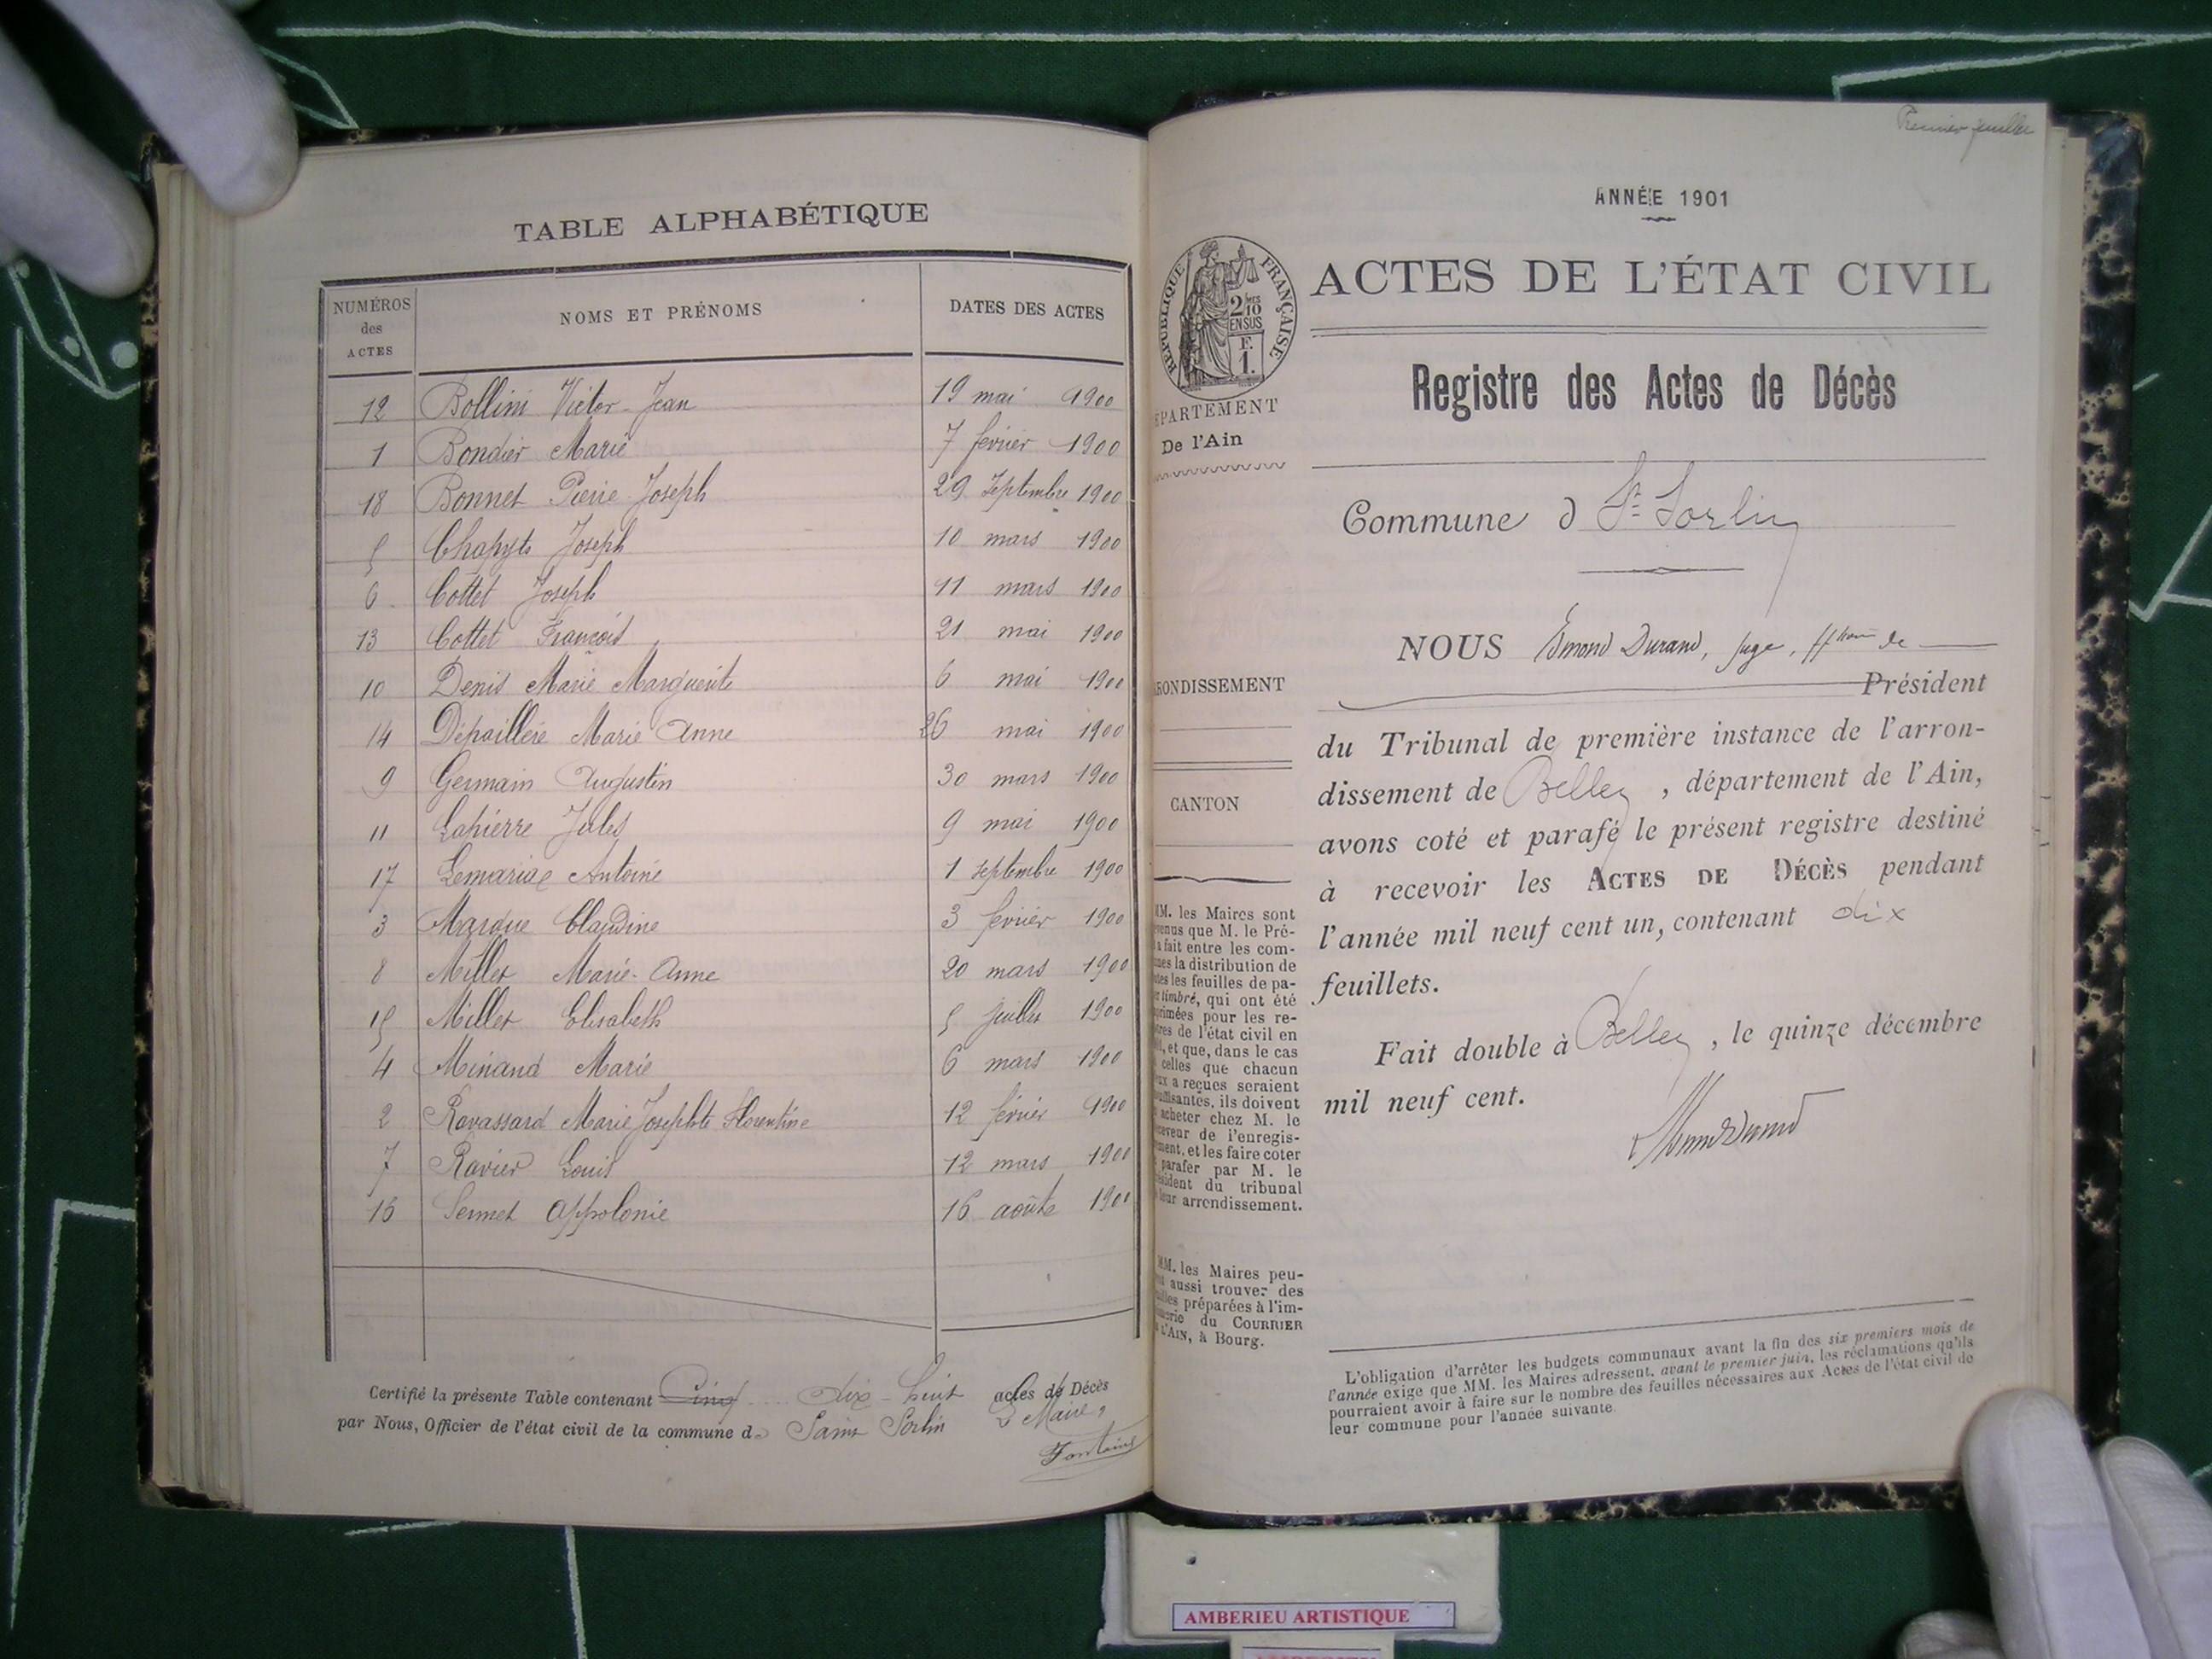 TABLE ALPHABÉTIQUE
NUMÉROS des ACTES NOMS ET PRÉNOMS DATES DES ACTES
12 Bollini Victor-Jean 19 mai 1900
1 Bondier Marie 7 fevrier 1900
18 Bonnet Pierre Joseph 29 Septembre 1900
5 Joseph 10 mars 1900
6 Cottet Joseph 11 mars 1900
13 Cottet François 21 mai 1900
10 Denis Marie Marguerite 6 mai 1900
14 Dépaillère Marie Anne 26 mai 1900
9 Germain Augustin 30 mars 1900
11 Lapierre Jules 9 mai 1900
17 Antoine 1 septembre 1900
3 Marque Claudine 3 fevrier 1900
8 Millet Marie-Anne 20 mars 1900
15 Millet Elisabeth 5 juillet 1900
4 Minand Marie 6 mars 1900
2 Ravassard Marie Josephte Florentine 12 février 1900
7 Ravier Louis 12 mars 1900
16 Sermet Appolonie 16 août 1900
Certifié la présente Table contenant Cinq dix-huit actes de Décès
par Nous, Officier de l'état civil de la commune de Saint Sorlin Le Maire,
Fontaine
Premier feuillet
ANNÉE 1901
RÉPUBLIQUE FRANÇAISE
2/10 EN SUS
F. 1.
ACTES DE L'ÉTAT CIVIL
Registre des Actes de Décès
ÉPARTEMENT
De l'Ain
Commune d St Sorlin
NOUS Edmond Durand, juge, ffons de
Président
RONDISSEMENT
du Tribunal de première instance de l'arron-
dissement de Belley, département de l'Ain,
CANTON
avons coté et parafé le présent registre destiné
à recevoir les ACTES DE DÉCÈS pendant
l'année mil neuf cent un, contenant dix
feuillets.
Fait double à Belley, le quinze décembre
mil neuf cent.
MM. les Maires sont
venus que M. le Pré-
a fait entre les com-
nes la distribution de
tes les feuilles de pa-
er timbré, qui ont été
primées pour les re-
tres de l'état civil en
, et que, dans le cas
celles que chacun
ux a reçues seraient
uffisantes, ils doivent
acheter chez M. le
ceveur de l'enregis-
ment, et les faire coter
parafer par M. le
ésident du tribunal
leur arrondissement.
MM. les Maires peu-
t aussi trouver des
illes préparées à l'im-
merie du COURRIER
L'AIN, à Bourg.
L'obligation d'arrêter les budgets communaux avant la fin des six premiers mois de
l'année exige que MM. les Maires adressent, avant le premier juin, les réclamations qu'ils
pourraient avoir à faire sur le nombre des feuilles nécessaires aux Actes de l'état civil de
leur commune pour l'année suivante.
AMBERIEU ARTISTIQUE